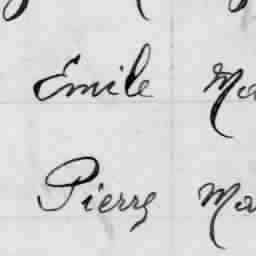 Emile Ma
Pierre Ma